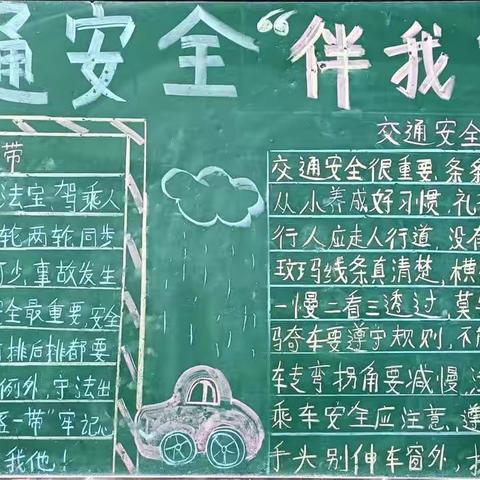 通安全“伴我
带
法宝,驾乘人
轮两轮,同步
可少,事故发生
全最重要,安全
前排后排都要
例外,守法出
一带"牢记心
我他!
交通安全
交通安全很重要,条条
从小养成好习惯,礼
行人应走人行道,没有
玟玛线条真清楚,横
一慢二看三透过,莫
骑车要遵守规则,不
车走弯拐角要减慢
乘车安全应注意,遵
手头别伸车窗外,